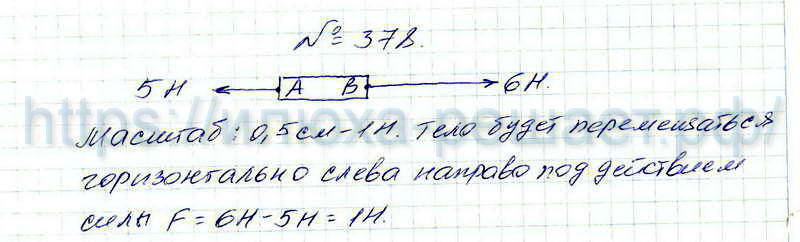 № 378.
5Н A B 6Н.
https://илюха-решает.рф/
Масштаб: 0,5см – 1Н. Тело будет перемещаться
горизонтально слева направо под действием
силы F = 6Н – 5Н = 1Н.